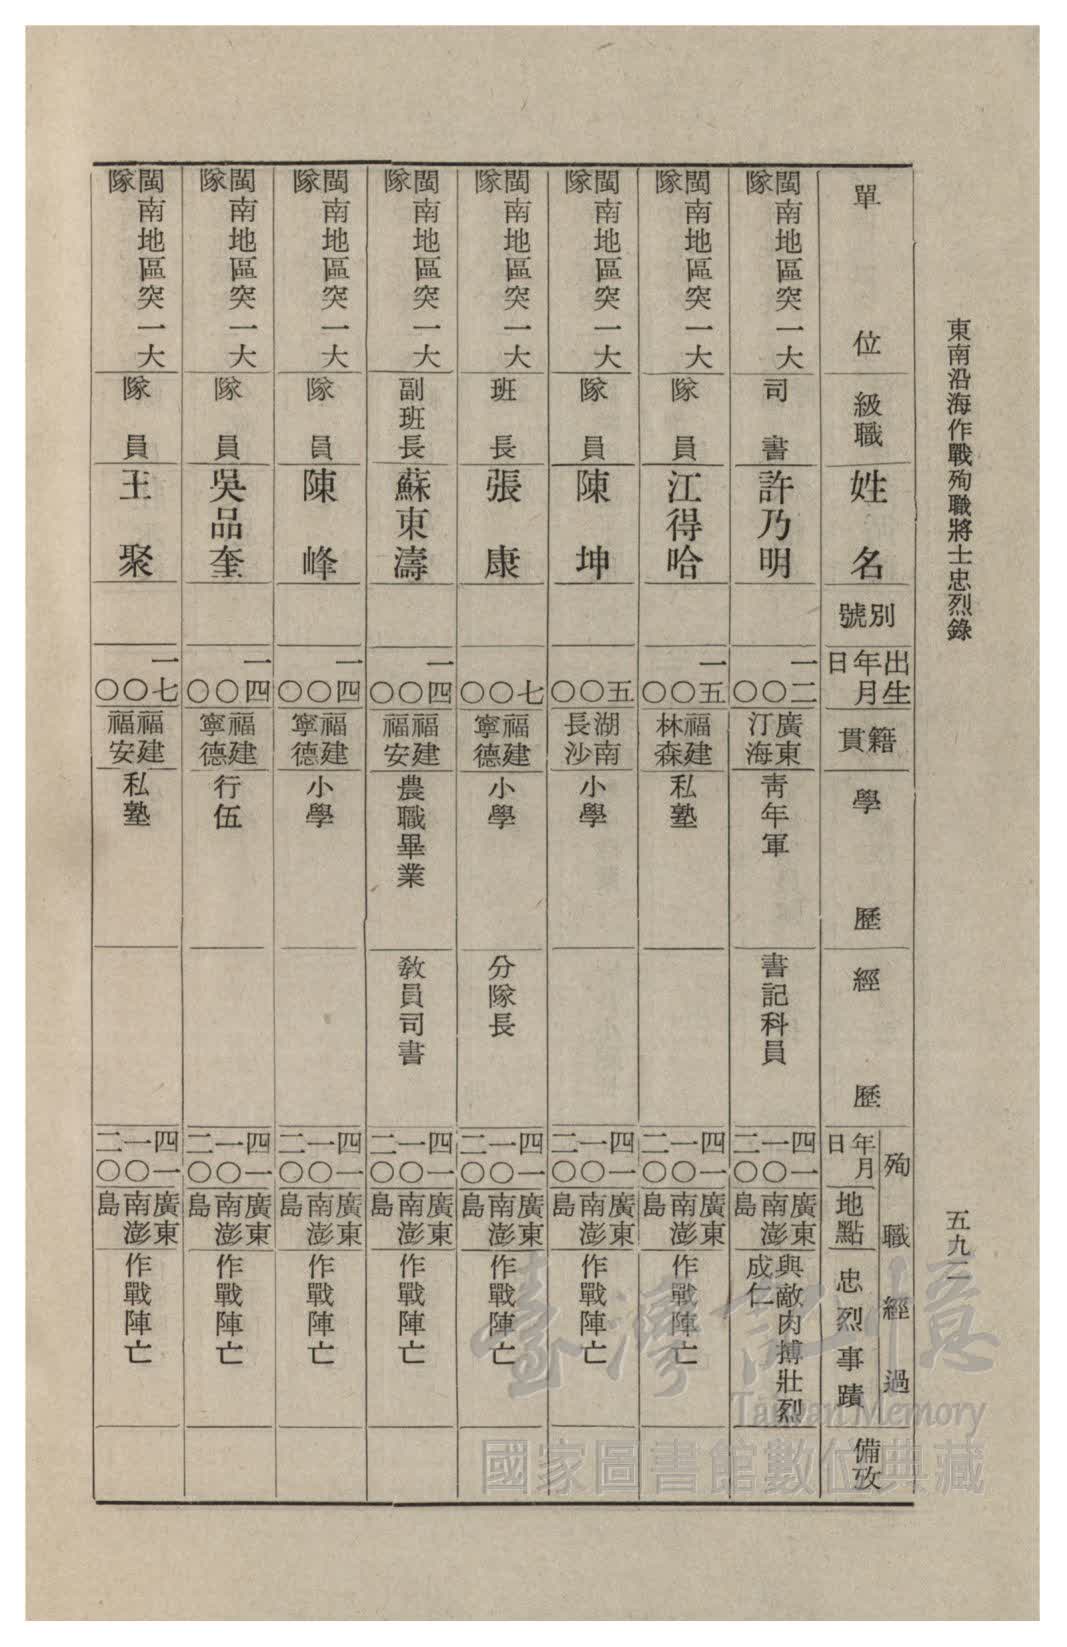 東南沿海作戰殉職將士忠烈錄
五九二
單位
級職
姓名
別號
出生
年月
日
籍貫
學歷
經歷
殉職經過
年月
日
地點
忠烈事蹟
備攷
閩南地區突一大
隊
司書
許乃明
一二
〇
〇
廣東
汀海
青年軍
書記科員
四一
一〇
二〇
廣東
南澎
島
與敵肉搏壯烈
成仁
閩南地區突一大
隊
隊員
江得哈
一五
〇
〇
福建
林森
私塾
四一
一〇
二〇
廣東
南澎
島
作戰陣亡
閩南地區突一大
隊
隊員
陳坤
五
〇
〇
湖南
長沙
小學
四一
一〇
二〇
廣東
南澎
島
作戰陣亡
閩南地區突一大
隊
班長
張康
七
〇
〇
福建
寧德
小學
分隊長
四一
一〇
二〇
廣東
南澎
島
作戰陣亡
閩南地區突一大
隊
副班長
蘇東濤
一四
〇
〇
福建
福安
農職畢業
教員司書
四一
一〇
二〇
廣東
南澎
島
作戰陣亡
閩南地區突一大
隊
隊員
陳峰
一四
〇
〇
福建
寧德
小學
四一
一〇
二〇
廣東
南澎
島
作戰陣亡
閩南地區突一大
隊
隊員
吳品奎
一四
〇
〇
福建
寧德
行伍
四一
一〇
二〇
廣東
南澎
島
作戰陣亡
閩南地區突一大
隊
隊員
王聚
一七
〇
〇
福建
福安
私塾
四一
一〇
二〇
廣東
南澎
島
作戰陣亡
臺灣記憶
Taiwan Memory
國家圖書館數位典藏